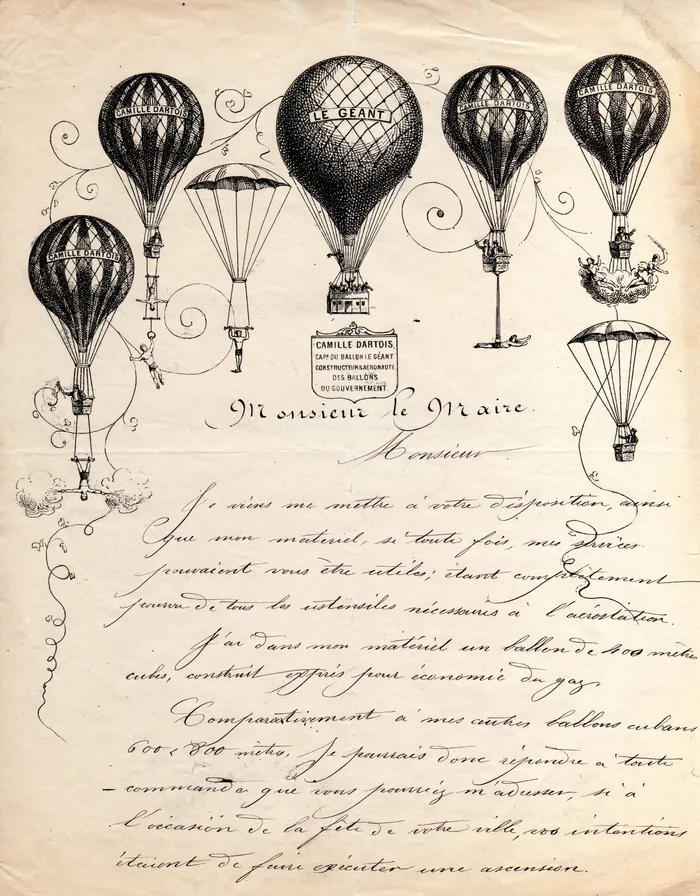 CAMILLE DARTOIS
LE GÉANT
CAMILLE DARTOIS
CAMILLE DARTOIS
CAMILLE DARTOIS
CAMILLE DARTOIS
CAPⁿᵉ DU BALLON LE GÉANT
CONSTRUCTEUR & AÉRONAUTE
DES BALLONS
DU GOUVERNEMENT.
Monsieur le Maire.
Monsieur
Je viens me mettre à votre disposition, ainsi
que mon matériel, si toute fois, mes services
pouvaient vous être utiles; étant complètement
pourvu de tous les ustensiles nécessaires à l'aérostation.
J'ai dans mon matériel un ballon de 400 mètres
cubes, construit exprès pour économie du gaz,
Comparativement à mes autres ballons cubans
600 & 800 mètres. Je pourrais donc répondre à toute
commande que vous pourriez m'adresser, si à
l'occasion de la fête de votre ville, vos intentions
étaient de faire exécuter une ascension.